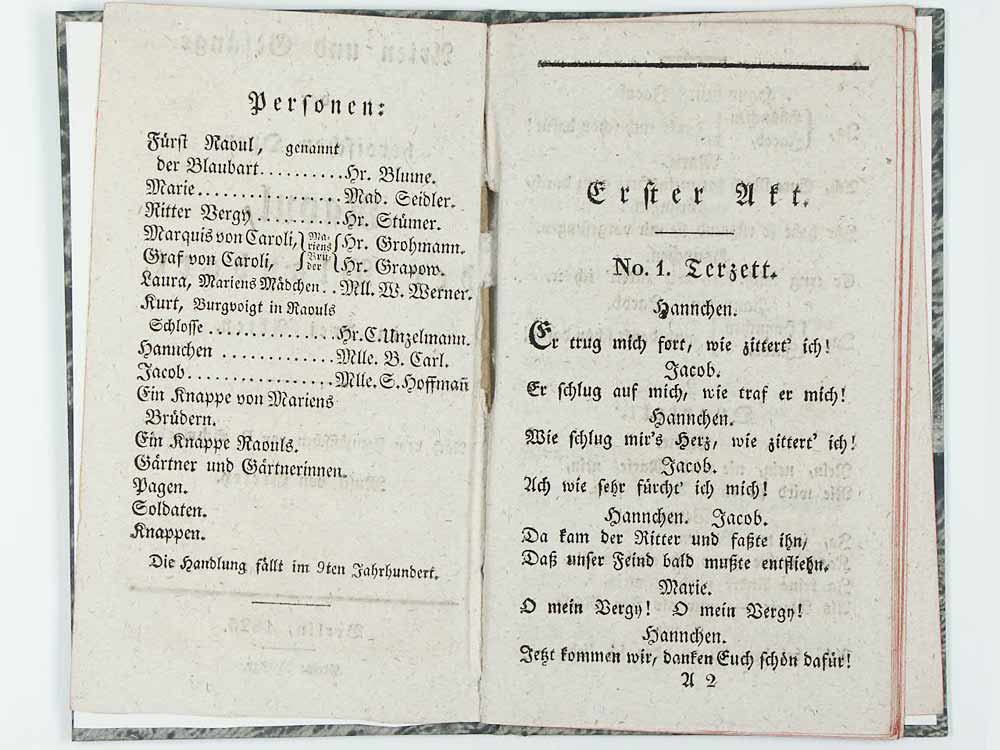 Personen:
Fürst Raoul, genannt
der Blaubart..........Hr. Blume.
Marie..............Mad. Seidler.
Ritter Vergy..........Hr. Stümer.
Marquis von Caroli, } Ma- { Hr. Grohmann.
riens
Graf von Caroli, } Brü- { Hr. Grapow.
der
Laura, Mariens Mädchen..Mll. W. Werner.
Kurt, Burgvoigt in Raouls
Schlosse..............Hr. C. Unzelmann.
Hannchen............Mlle. B. Carl.
Jacob................Mlle. S. Hoffmañ
Ein Knappe von Mariens
Brüdern.
Ein Knappe Raouls.
Gärtner und Gärtnerinnen.
Pagen.
Soldaten.
Knappen.
Die Handlung fällt im 9ten Jahrhundert.
Erster Akt.
No. 1. Terzett.
Hannchen.
Er trug mich fort, wie zittert' ich!
Jacob.
Er schlug auf mich, wie traf er mich!
Hannchen.
Wie schlug mir's Herz, wie zittert' ich!
Jacob.
Ach wie sehr fürcht' ich mich!
Hannchen. Jacob.
Da kam der Ritter und faßte ihn,
Daß unser Feind bald mußte entfliehn.
Marie.
O mein Vergy! O mein Vergy!
Hannchen.
Jetzt kommen wir, danken Euch schön dafür!
A 2